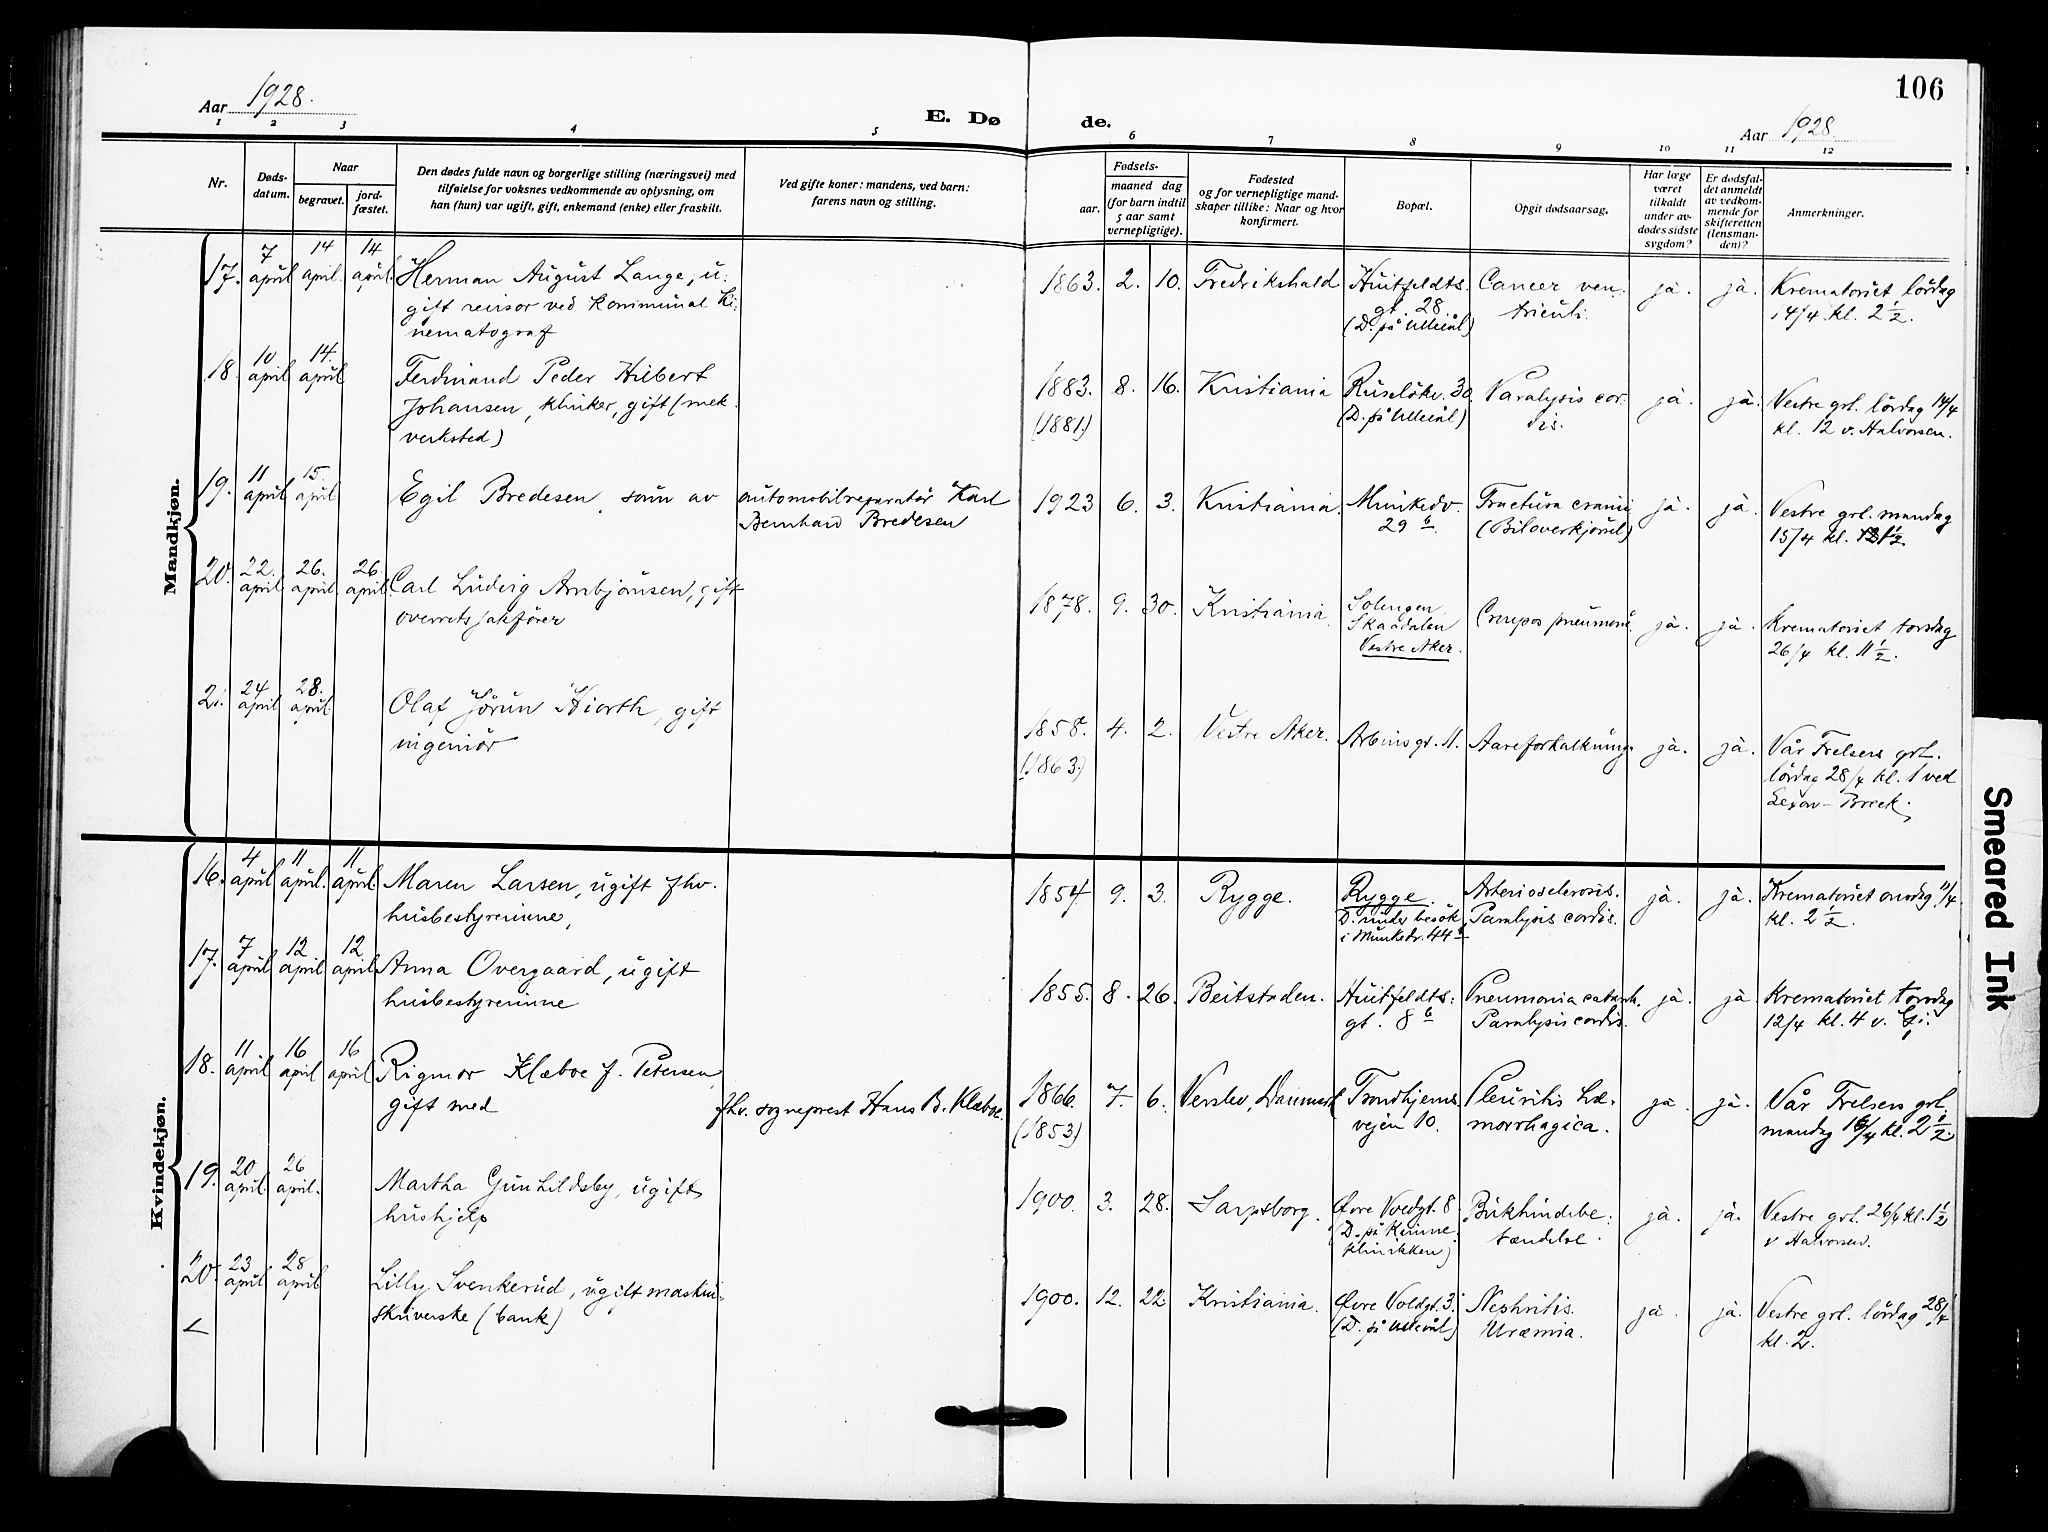 106
Aar 1928.
E. Dø
de.
Aar 1928.
1 2 3 4 5
6 7 8 9 10 11 12
Nr.
Døds-
datum.
Naar
begravet.
jord-
fæstet.
Den dødes fulde navn og borgerlige stilling (næringsvei) med
tilføielse for voksnes vedkommende av oplysning, om
han (hun) var ugift, gift, enkemand (enke) eller fraskilt.
Ved gifte koner: mandens, ved barn:
farens navn og stilling.
Fødsels-
aar.
maaned dag
(for barn indtil
5 aar samt
vernepligtige).
Fødested
og for vernepligtige mand-
skaper tillike: Naar og hvor
konfirmert.
Bopæl.
Opgit dødsaarsag.
Har læge
været
tilkaldt
under av-
dødes sidste
sygdom?
Er dødsfal-
det anmeldt
av vedkom-
mende for
skifteretten
(lensman-
den)?
Anmerkninger.
Mandkjøn.
17. 7 april 14 april. 14 april.
Herman August Lange, u:
gift revisor ved kommunal Ki:
nematograf
1863. 2. 10. Fredrikshald
Huitfeldts.
gt. 28.
(D. på Ullevål)
Cancer ven-
triculi.
ja. ja.
Krematoriet lördag
14/4. kl. 2 1/2.
18. 10 april 14. april
Ferdinand Peder Hilbert
Johansen, klinker, gift (mek.
verksted)
1883. 8. 16. Kristiania
(1881.)
Ruselökv. 30.
(D. på Ullevål)
Paralysis cor-
dis.
ja. ja.
Vestre grl. lördag 14/4
kl. 12 v. Halvorsen.
19. 11 april 15. april
Egil Bredesen, sönn av
automobilreparatör Karl
Bernhard Bredesen
1923 6. 3. Kristiania.
Munkedv.
29 b.
Fractura cranii
(Biloverkjørsel)
ja. ja.
Vestre grl. mandag
15/4 kl.
20. 22. april 26. april. 26. april.
Carl Ludvig Arnbjörnsen, gift
overretssakförer
1878. 9. 30. Kristiania.
Solengen,
Skaadalen
Vestre Aker.
Croupøs pneumoni.
ja. ja.
Krematoriet torsdag
26/4 kl. 11 1/2.
21. 24 april 28. april.
Olaf Jörun Hiorth, gift
ingeniör
1858. 4. 2. Vestre Aker.
(1863.)
Arbinsgt. 11.
Aareforkalkning.
ja. ja.
Vår Frelsers grl.
lördag 28/4 kl. 1 ved
Kvindekjøn.
16. 4 april 11 april. 11 april.
Maren Larsen, ugift fhv.
husbestyrerinne,
1854 9. 3. Rygge.
Rygge.
D. under besök
i Munkedv. 44 b
Arteriosclerosis.
Paralysis cordis.
ja. ja.
Krematoriet onsdag 11/4.
kl. 2 1/2.
17. 7 april 12 april 12 april
Anna Overgaard, ugift
husbestyrerinne
1855. 8. 26. Beitstaden.
Huitfeldts:
gt. 8 b
Pneumonia catarrh.
Paralysis cordis.
ja. ja
Krematoriet torsdag
12/4 kl. 4 v.
18. 11 april 16 april 16 april
Rigmor Klæboe f. Petersen,
gift med
fhv. sogneprest Hans B. Klæboe.
1866. 7. 6. Verslev, Danmark
(1853)
Trondhjems
vejen 10.
Pleuritis hæ-
morrhagica.
ja. ja.
Vår Frelsers grl.
mandag 16/4 kl. 2 1/2.
19. 20 april 26 april.
Martha Gunhildsby, ugift
hushjelp
1900. 3. 28. Sarpsborg.
Øvre Voldgt. 8
(D. på Kvinne
klinikken)
Bukhindebe:
tændelse.
ja. ja.
Vestre grl. 26/4 kl. 1 1/2
v Halvorsen.
20. 23 april 28 april
Lilly Svenkerud, ugift maskin-
skriverske (bank)
1900. 12. 22 Kristiania.
Øvre Voldgt. 3.
(D. på Ullevål)
Nephritis.
Uræmia.
ja. ja.
Vestre grl. lördag 28/4
kl. 2.
Smeared Ink